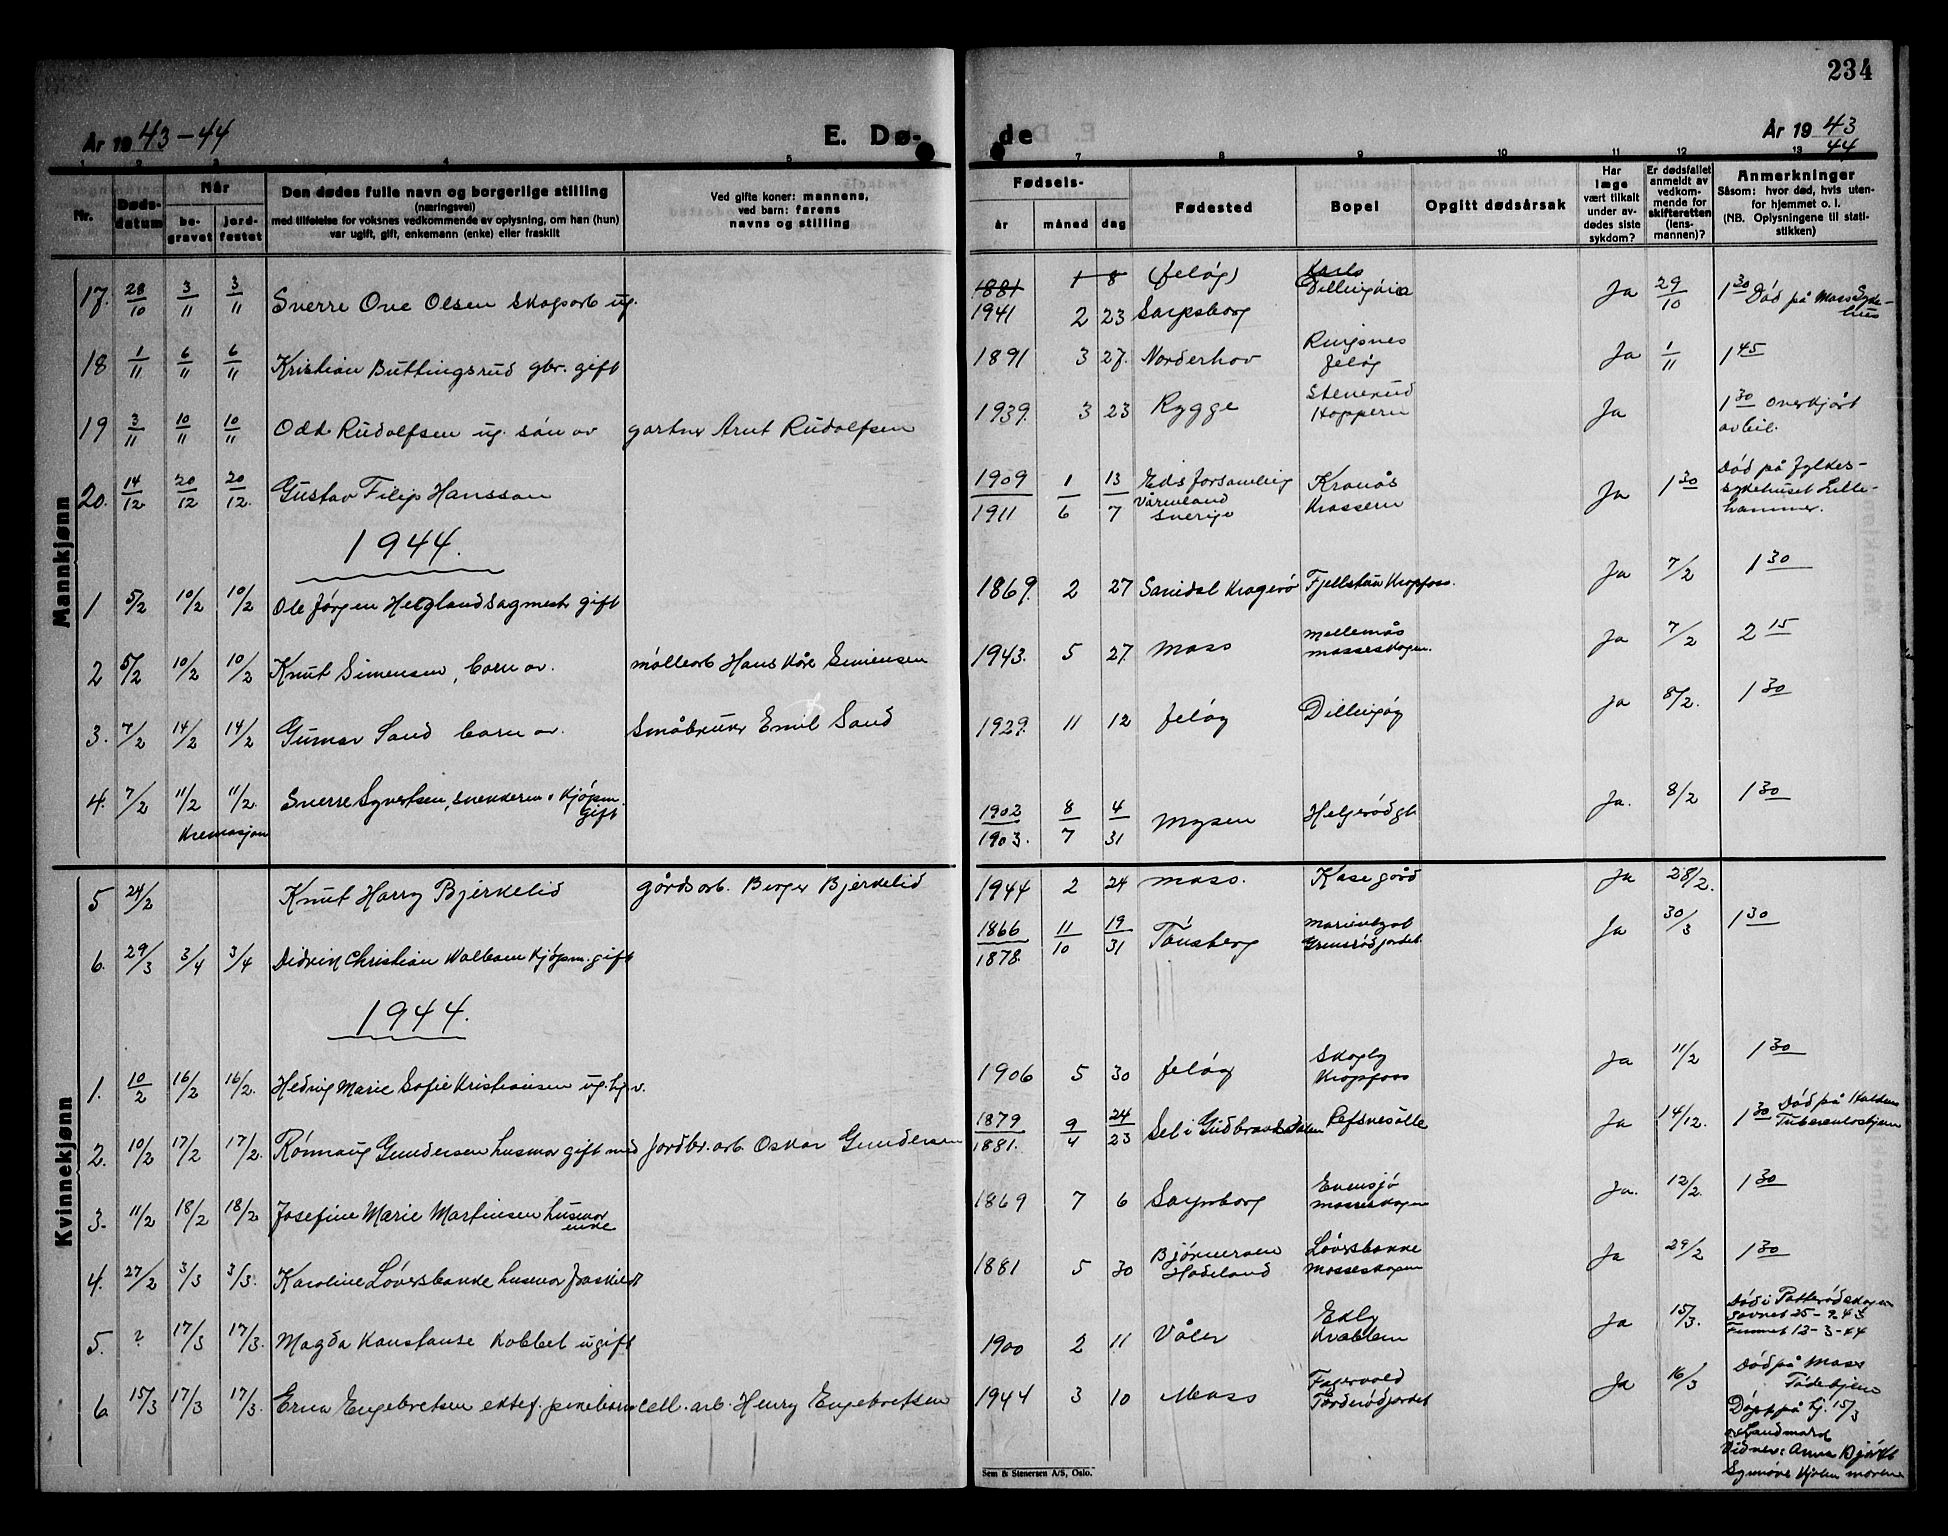 234
År 1943-44
E. Dø-
de
År 1943
44
1 2 3 4 5 7 8 9 10 11 12 13
Nr.
Døds-
datum
Når
be-
gravet
jord-
festet
Den dødes fulle navn og borgerlige stilling
(næringsvei)
med tilføielse for voksnes vedkommende av oplysning, om han (hun)
var ugift, gift, enkemann (enke) eller fraskilt
Ved gifte koner: mannens,
ved barn: farens
navns og stilling
Fødsels-
år måned dag
Fødested
Bopel
Opgitt dødsårsak
Har
læge
vært tilkalt
under av-
dødes siste
sykdom?
Er dødsfallet
anmeldt av
vedkom-
mende for
skifteretten
(lens-
mannen)?
Anmerkninger
Såsom: hvor død, hvis uten-
for hjemmet o. l.
(NB. Oplysningene til stati-
stikken)
Mannkjønn
17. 28/10 3/11 3/11 Sverre Ove Olsen skogsarb ug. 1881 1 8 (Jeløy)
1941 2 23 Sarpsborg Ja 29/10 1 30 Død på Moss Syke-
hus
18 1/11 6/11 6/11 Kristian Buttingsrud gbr. gift 1891 3 27. Norderhov Ringsnes
Jeløy Ja 1/11 1 45
19 3/11 10/11 10/11 Odd Rudolfsen ug. sön av gartner Arnt Rudolfsen 1939. 3 23 Rygge Stenerud
Koppern Ja 1 30 Overkjört
av bil.
20. 14/12 20/12 20/12. Gustav Filip Hansson 1909 1 13 Eds forsamling
1911 6 7 Värmland
Sverige Kranås
Krossern Ja 1 30 Død på Fylkes-
sykehuset Lille-
hammer.
1944.
1 5/2 10/2 10/2 Ole Jørgen Helgland Sagmest. gift 1869. 2 27 Sanidal Kragerö Fjellstua Kropfoss. Ja 7/2 1 30
2 5/2 10/2 10/2 Knut Simensen, barn av. mölleårb Hans Kåre Simensen 1943. 5 27. Moss Mellemås
Mosseskogen. Ja 7/2 2 15
3. 7/2 14/2 14/2 Gunnar Sand barn av. Småbruker Emil Sand 1929. 11 12 Jeløy Dillingøy Ja 8/2. 1 30
4. 7/2 11/2 11/2. Sverre Syvertsen, snekkerm. Kjøpm.
gift
Kremasjon
1902 8 4
1903. 7 31 Mysen Helgerödgt Ja. 8/2 1 30
Kvinnekjønn
5 24/2 Knut Harry Bjerkelid gårdsarb. Berger Bjerkelid 1944 2 24 Moss. Kase gård Ja 28/2.
6. 29/3 3/4 3/4 Didrik Christian Walbom Kjøpm. gift 1866 11 19
1878. 10 31 Tönsberg Marienlyst
Grimsrödjordet Ja 30/3 1 30
1944.
1. 10/2 16/2 16/2. Hedvig Marie Sofie Kristiansen ug. hj.v. 1906 5 30 Jeløy Skogly
Kropfoss Ja 11/2 1 30
2. 10/2 17/2 17/2. Rönnaug Gundersen husmor gift med Jordbr. arb. Oskar Gundersen 1879 9 24
1881. 4 23 Sel i Gudbrandsdalen Refsnesalle Ja 14/12. 1 30 Død på
Tuberkuloshjem
3. 11/2 18/2 18/2 Josefine Marie Martinsen husmor
enke 1869 7 6 Sarpsborg Evensjø
Mosseskogen Ja. 12/2. 1 30
4. 27/2 3/3 3/3. Karoline Løversbakke husmor fraskilt 1881 5 30 Bjørneroen
Hadeland Løversbakke
Mosseskogen Ja 29/2 1 30
5. ? 17/3 17/3. Magda Konstanse Kobbel ugift 1900 2 11 Våler Edly
Kvablem Ja 15/3. Død i Patterödskogen
Savnet 25-9 43
Funnet 12-3-44
6 15/3 17/3 17/3. Erna Engebretsen ektef. pikebarn cell. arb. Henry Engebretsen 1944 3 10 Moss Fagervold
Tørderödjordet Ja 16/3 Død på Moss
Födehjem
Döpt på hj. 15/3
av Landmark
Vidner: Anna Bjørk
Synnöve Kjølen moren
Sem & Stenersen A/S, Oslo.